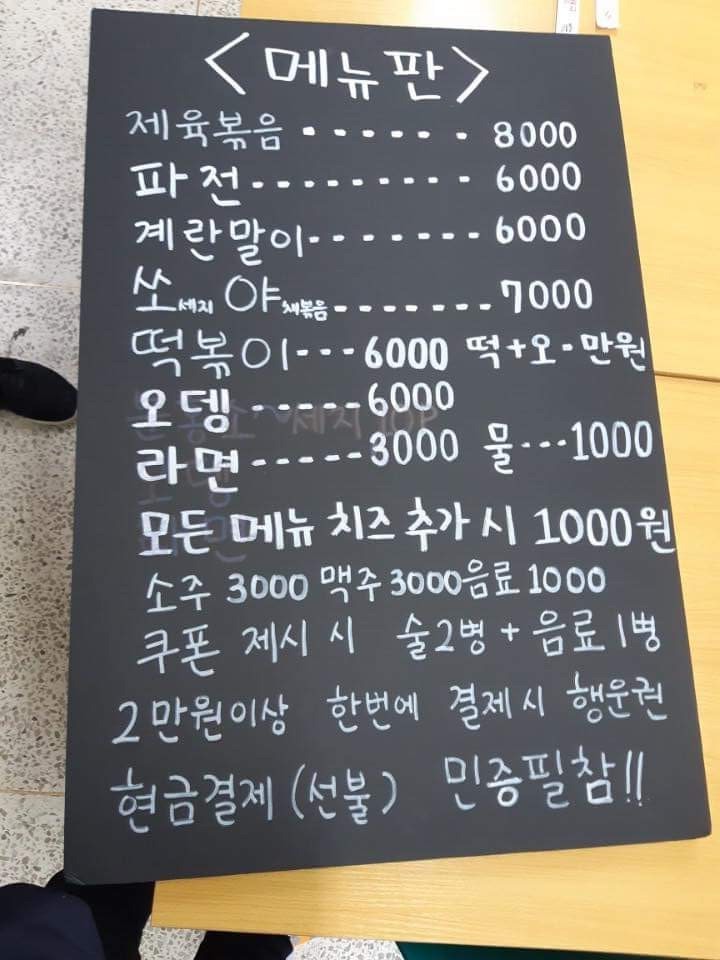 <메뉴판>
제육볶음 ------ 8000
파전---------- 6000
계란말이-------- 6000
쏘세지 야채볶음------- 7000
떡볶이---6000 떡+오-만원
오뎅-----6000
라면-----3000 물---1000
모든 메뉴 치즈 추가 시 1000원
소주 3000 맥주 3000 음료 1000
쿠폰 제시 시 술2병 + 음료 1병
2만원이상 한번에 결제 시 행운권
현금결제 (선불) 민증필참!!